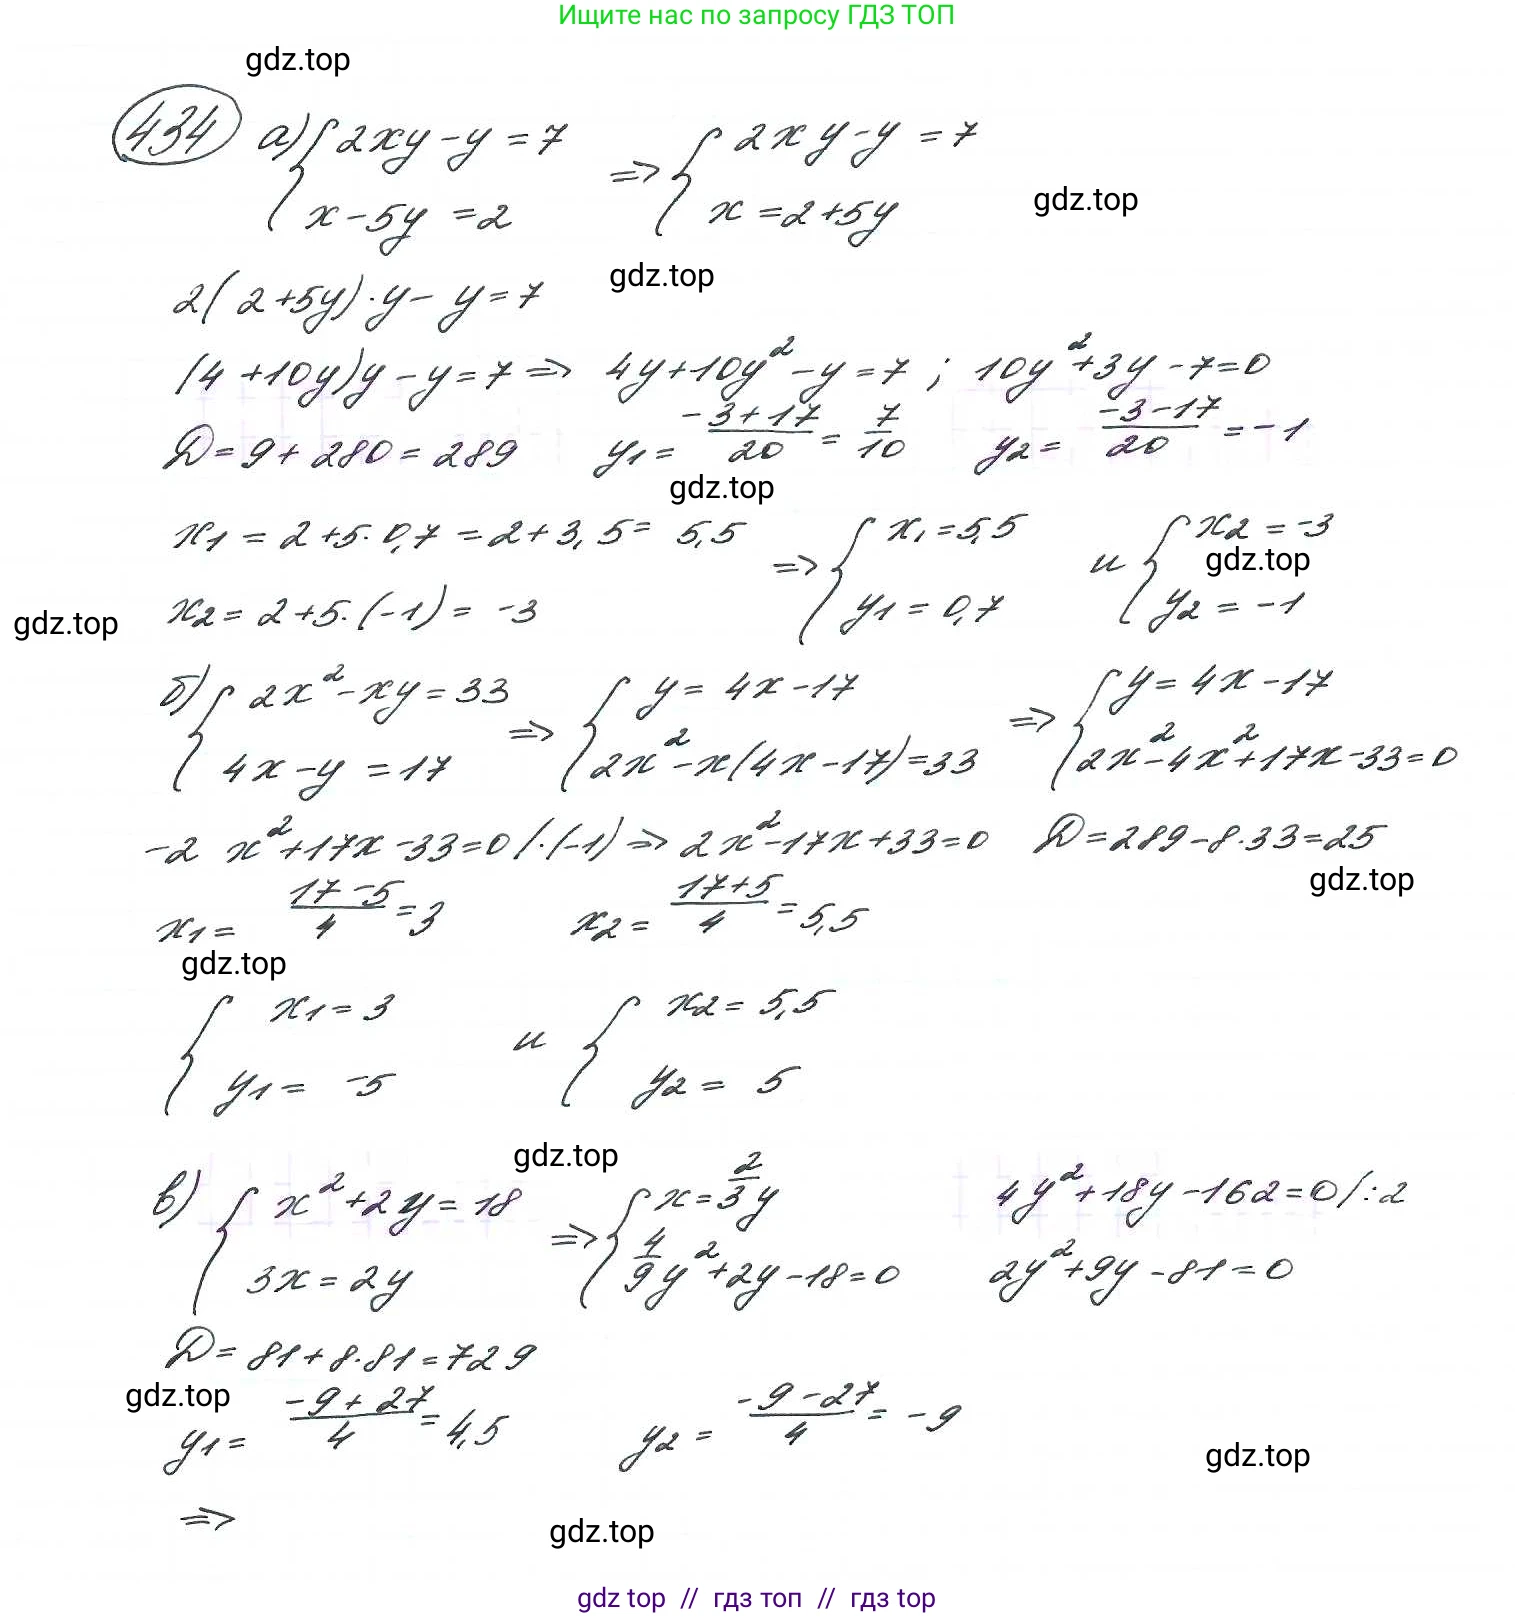 Ищите нас по запросу ГДЗ ТОП
gdz.top
434 а) { 2xy - y = 7 ; x - 5y = 2 => { 2xy - y = 7 ; x = 2 + 5y
gdz.top
gdz.top
2(2+5y)·y - y = 7
(4+10y)y - y = 7 => 4y + 10y² - y = 7 ; 10y² + 3y - 7 = 0
D = 9 + 280 = 289 y₁ = (-3+17)/20 = 7/10 y₂ = (-3-17)/20 = -1
gdz.top
x₁ = 2 + 5·0,7 = 2 + 3,5 = 5,5 => { x₁ = 5,5 ; y₁ = 0,7 и { x₂ = -3 ; y₂ = -1
gdz.top
x₂ = 2 + 5·(-1) = -3
gdz.top
б) { 2x² - xy = 33 ; 4x - y = 17 => { y = 4x - 17 ; 2x² - x(4x - 17) = 33 => { y = 4x - 17 ; 2x² - 4x² + 17x - 33 = 0
-2x² + 17x - 33 = 0 /·(-1) => 2x² - 17x + 33 = 0 D = 289 - 8·33 = 25
gdz.top
x₁ = (17-5)/4 = 3 x₂ = (17+5)/4 = 5,5
gdz.top
{ x₁ = 3 ; y₁ = -5 и { x₂ = 5,5 ; y₂ = 5
gdz.top
в) { x² + 2y = 18 ; 3x = 2y => { x = 2/3 y ; 4/9 y² + 2y - 18 = 0 4y² + 18y - 162 = 0 /:2
2y² + 9y - 81 = 0
D = 81 + 8·81 = 729
gdz.top
y₁ = (-9+27)/4 = 4,5 y₂ = (-9-27)/4 = -9
gdz.top
=>
gdz.top
gdz top // гдз топ // gdz top